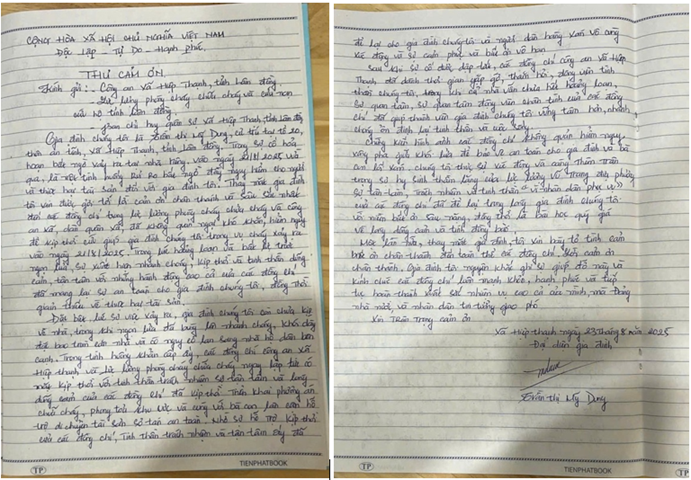 CỘNG HÒA XÃ HỘI CHỦ NGHĨA VIỆT NAM
Độc lập - Tự Do - Hạnh Phúc.
THƯ CẢM ƠN
Kính gửi: - Công an xã Hiệp Thạnh, tỉnh Lâm Đồng
lực lượng phòng cháy chữa cháy và cứu nạn
cứu hộ tỉnh Lâm Đồng.
Ban chỉ huy quân sự xã Hiệp Thạnh, tỉnh Lâm Đồng
Gia đình chúng tôi là Trần Thị Mỹ Dung, cư trú tại tổ 20,
xã Hiệp Thạnh, tỉnh Lâm Đồng. Trong sự cố hỏa
hoạn bất ngờ xảy ra tại nhà riêng vào ngày 21/8/2025 vừa
qua, là một tình huống rủi ro bất ngờ đầy nguy hiểm cho người
và thiệt hại tài sản đối với gia đình tôi. Thay mặt gia đình
tôi xin được gửi tới lời cảm ơn chân thành và sâu sắc nhất
đến các đồng chí trong lực lượng phòng cháy chữa cháy và công
an xã, dân quân xã, đã không quản ngại khó khăn, hiểm nguy
để kịp thời cứu giúp gia đình chúng tôi trong vụ cháy xảy ra
vào ngày 21/8/2025. Trong lúc hoảng loạn và bất lực trước
ngọn lửa, sự xuất hiện nhanh chóng, kịp thời và tinh thần dũng
cảm, tận tâm với những hành động cao cả của các đồng chí
đã mang lại sự an toàn cho gia đình chúng tôi, đồng thời
giảm thiểu về thiệt hại tài sản.
Đặc biệt lúc sự việc xảy ra, gia đình chúng tôi còn chưa kịp
về nhà, trong khi ngọn lửa đã bùng lên nhanh chóng. Khói dày
đặc bao trùm căn nhà và có nguy cơ lan sang nhà hộ dân bên
cạnh. Trong tình huống khẩn cấp ấy, các đồng chí công an xã
Hiệp Thạnh và lực lượng phòng cháy chữa cháy ngay lập tức có
mặt kịp thời với tinh thần trách nhiệm sự tận tâm và lòng
dũng cảm của các đồng chí đã kịp thời triển khai phương án
chữa cháy, phong tỏa khu vực và cùng với bà con lân cận hỗ
trợ di chuyển tài sản sơ tán an toàn. Nhờ sự hỗ trợ kịp thời
của các đồng chí, tinh thần trách nhiệm và tận tâm ấy đã
TP
TIENPHATBOOK
để lại cho gia đình chúng tôi và người dân hàng xóm vô cùng
xúc động và sự cảm phục và biết ơn vô hạn
Sau khi sự cố được dập tắt, các đồng chí công an xã Hiệp
Thạnh đã dành thời gian gặp gỡ, thăm hỏi, động viên tinh
thần chúng tôi, trong khi cả nhà vẫn chưa hết hoảng loạn,
sự quan tâm, sự quan tâm động viên chân tình của các đồng
chí đã giúp thành viên gia đình chúng tôi vững tâm hơn, nhanh
chóng ổn định lại tinh thần và cuộc sống.
Chứng kiến hình ảnh các đồng chí không quản hiểm nguy,
xông pha giữa khói lửa để bảo vệ an toàn cho gia đình và bà
con lối xóm chúng tôi thực sự xúc động và càng thấm thía
trong sự hy sinh thầm lặng của lực lượng vũ trang địa phương
sự tận tâm, trách nhiệm và tinh thần "vì nhân dân phục vụ"
của các đồng chí đã để lại trong lòng gia đình chúng tôi
và niềm biết ơn sâu nặng, đồng thời là bài học quý giá
về lòng dũng cảm và tình đồng bào.
Một lần nữa, thay mặt gia đình, tôi xin bày tỏ tình cảm
biết ơn chân thành đến toàn thể các đồng chí, lời cảm ơn
chân thành. Gia đình tôi nguyện khắc ghi sự giúp đỡ này và
kính chúc các đồng chí luôn mạnh khỏe, hạnh phúc và tiếp
tục hoàn thành xuất sắc nhiệm vụ cao cả của mình mà Đảng
nhà nước, và nhân dân tin tưởng giao phó
Xin Trân Trọng cảm ơn
Xã Hiệp Thạnh ngày 23 tháng 8 năm 2025
Đại diện gia đình
Trần Thị Mỹ Dung
TP
TIENPHATBOOK
TP